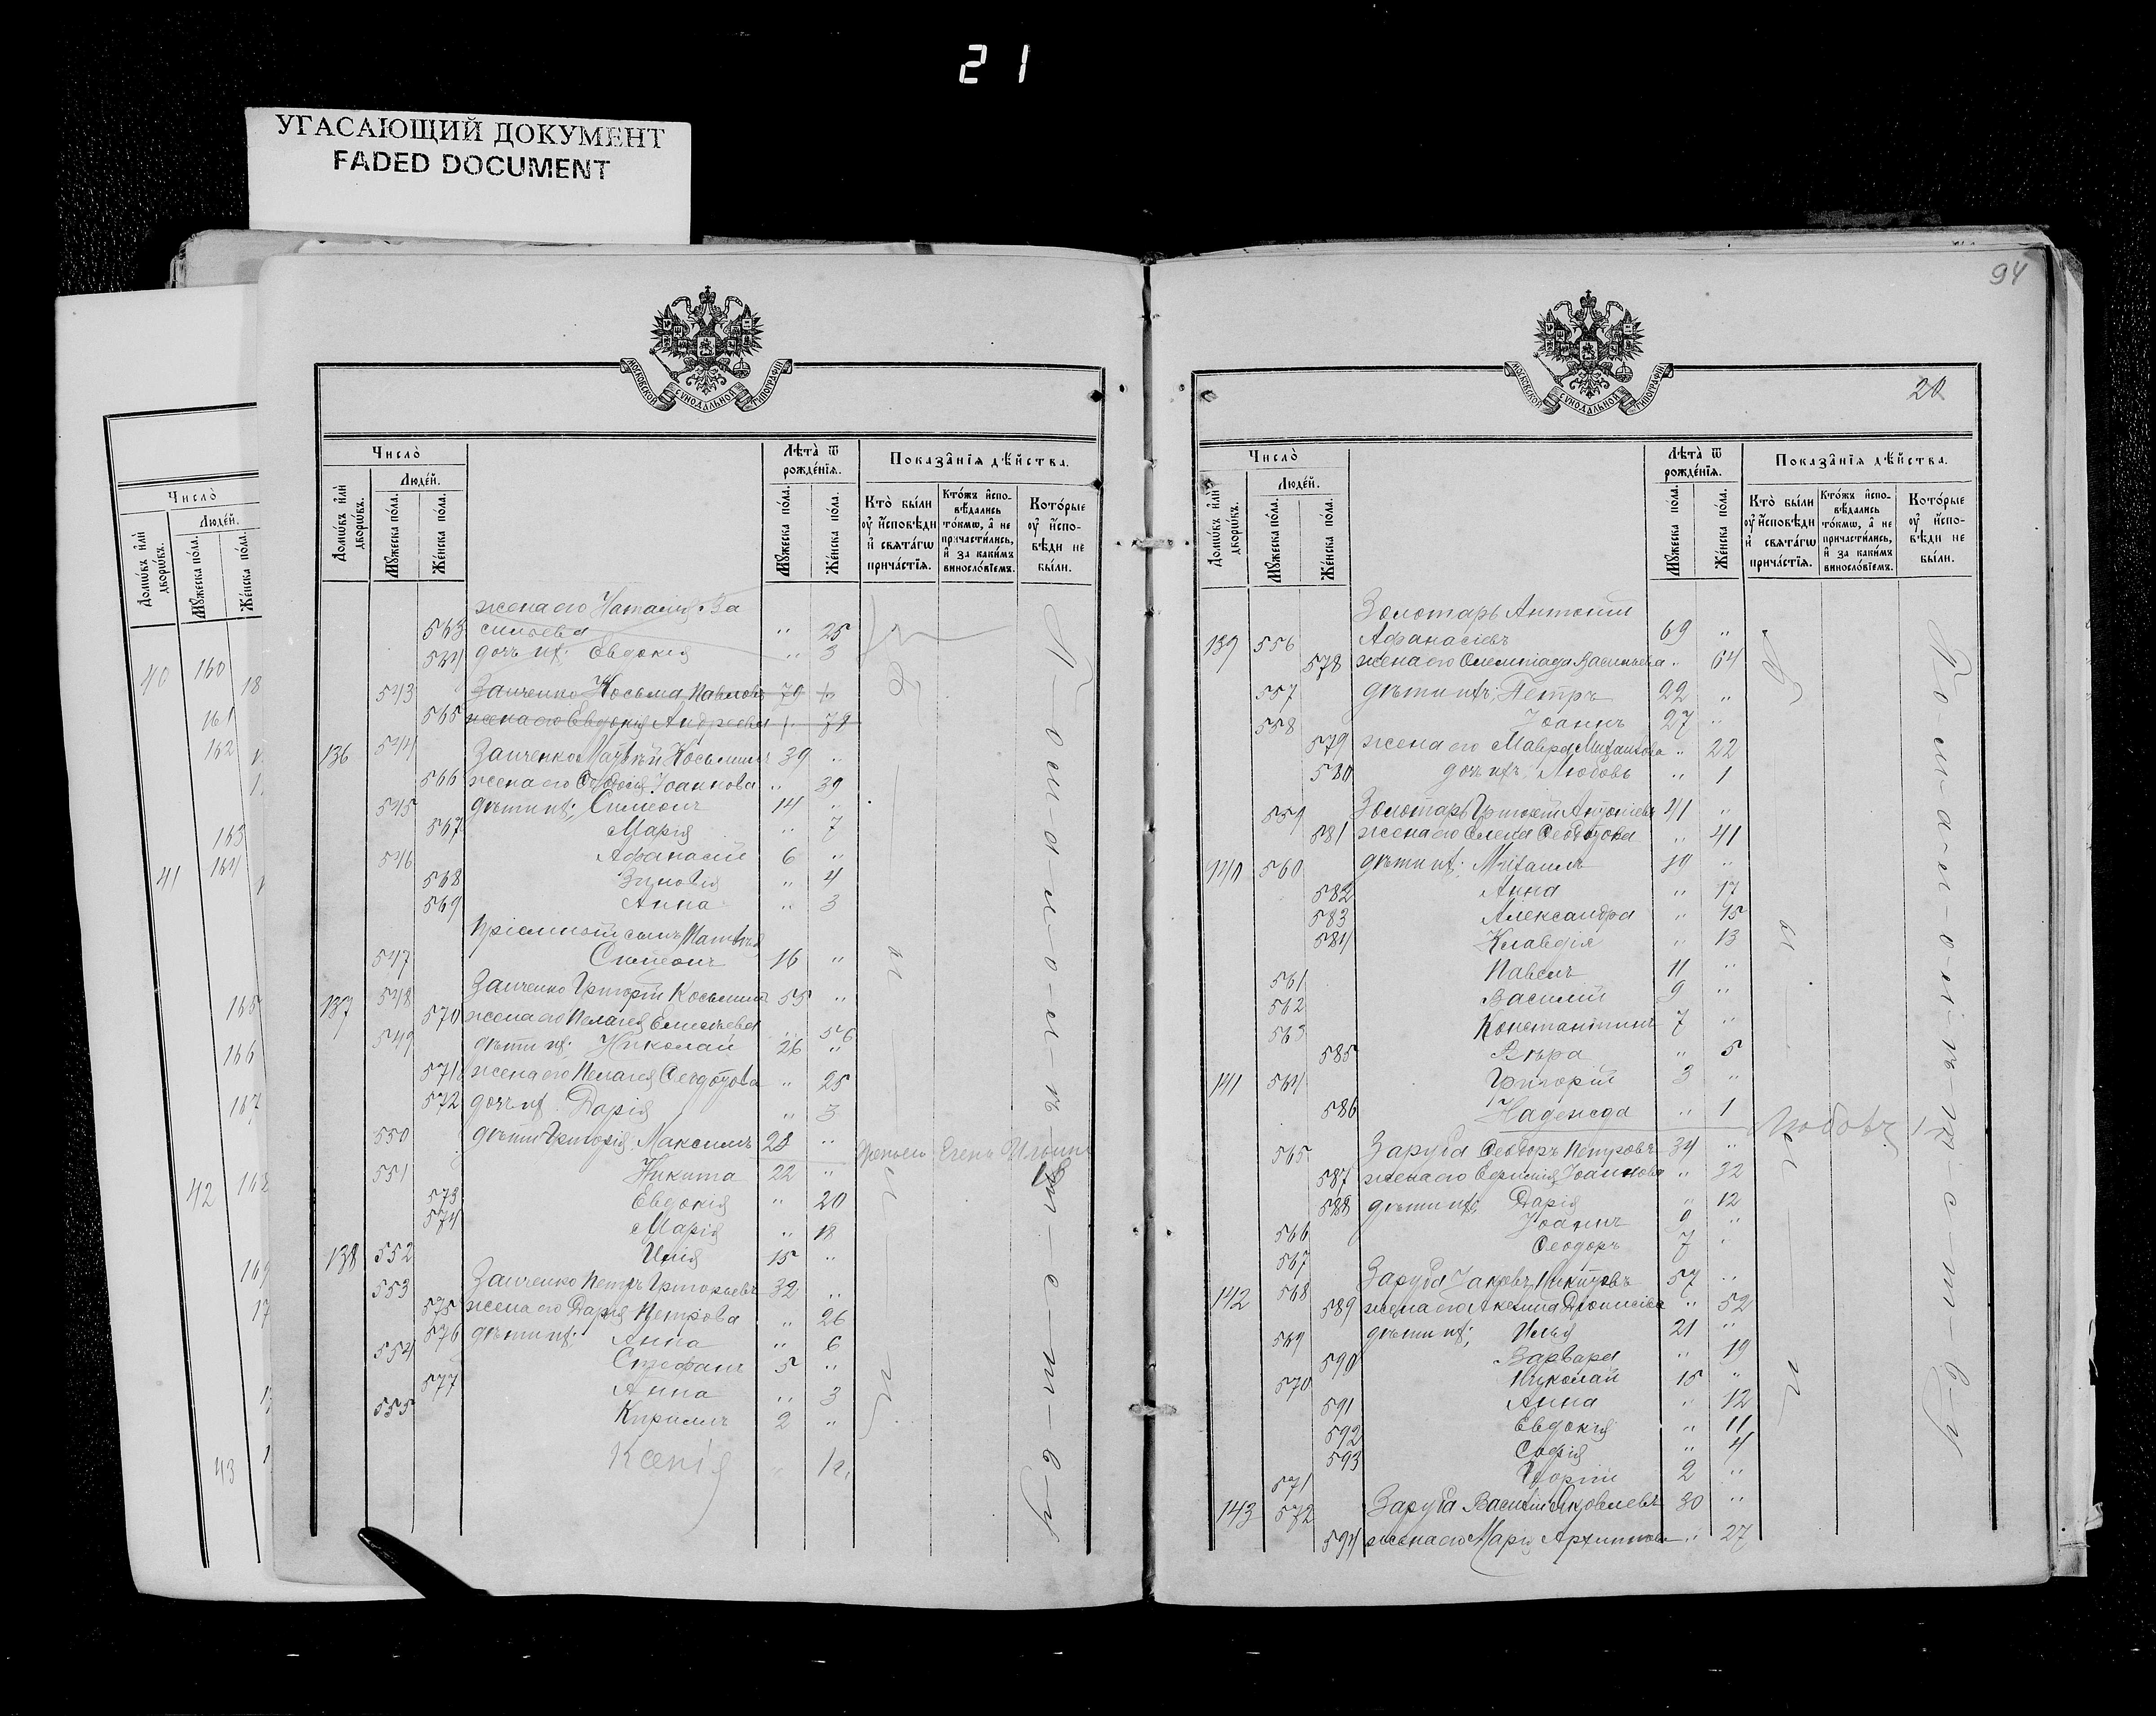 21
УГАСАЮЩИЙ ДОКУМЕНТ
FADED DOCUMENT
Число
Людей.
Домѡвъ или дворѡвъ.
Мужеска пола.
Женска пола.
40 160
18
161
162
163
41 164
165
166
167
42 168
169
43
МОСКОВСКОЙ СѴНОДАЛЬНОЙ ТИПОГРАФІИ
Число
Людей.
Домѡвъ или дворѡвъ.
Мужеска пола.
Женска пола.
Лѣта ѿ рожденія.
Мужеска пола.
Женска пола.
Показанія дѣйства.
Кто были у исповѣди и святагѡ причастія.
Ктожъ исповѣдались токмѡ, а не причастились, и за какимъ винословіемъ.
Которые у исповѣди не были.
жена его Наталія Ва
563 сильева " 25
564 дочь их: Евдокія " 3
543 Заиченко Косьма Павловъ 79
565 жена его Евдокія Андреева 79
136 544 Заиченко Матѳей Косьминъ 39 "
566 жена его Іоаннова " 39
545 дѣти их: Симеонъ 14 "
567 Марія " 7
546 Афанасій 6 "
568 Зиновія " 4
569 Анна " 3
Пріемный сынъ Матвѣя
547 Симеонъ 16 "
137 548 Заиченко Григорій Косьминъ 55 "
570 жена его Пелагея Елисеева " 56
549 дѣти их: Николай 26 "
571 жена его Пелагея Ѳеодотова " 25
572 дочь их Дарія " 3
550 дѣти Григорія: Максимъ 23 "
551 Никита 22 "
573 Евдокія " 20
574 Марія " 18
138 552 Илія 15 "
553 Заиченко Петръ Григорьевъ 32 "
575 жена его Дарія Петрова " 26
576 дѣти их: Анна " 6
554 Стефанъ 5 "
577 Анна " 3
555 Кириллъ 2 "
Ксенія
94
МОСКОВСКОЙ СѴНОДАЛЬНОЙ ТИПОГРАФІИ
20
Число
Людей.
Домѡвъ или дворѡвъ.
Мужеска пола.
Женска пола.
Лѣта ѿ рожденія.
Мужеска пола.
Женска пола.
Показанія дѣйства.
Кто были у исповѣди и святагѡ причастія.
Ктожъ исповѣдались токмѡ, а не причастились, и за какимъ винословіемъ.
Которые у исповѣди не были.
Золотарь Антоній
139 556 Афанасіевъ 69 "
578 жена его Олимпіада Васильева " 64
557 дѣти их: Петръ 22 "
558 Іоаннъ 27 "
579 жена его Мавра Михаилова " 22
580 дочь их: Любовь " 1
559 Золотарь Григорій Антоніевъ 41 "
581 жена его Елена Ѳеодорова " 41
140 560 дѣти их: Михаилъ 19 "
582 Анна " 17
583 Александра " 15
584 Клавдія " 13
561 Павелъ 11 "
562 Василій 9 "
563 Константинъ 7 "
585 Вѣра " 5
141 564 Григорій 3 "
586 Надежда " 1
Любовь
565 Заруба Ѳеодоръ Петровъ 34 "
587 жена его Евфимія Іоаннова " 32
588 дѣти их: Дарія " 12
566 Іоаннъ 9 "
567 Ѳеодоръ 7 "
142 568 Заруба Іаковъ Никитовъ 57 "
589 жена его Акелина Діонисіева " 52
569 дѣти их: Илья 21 "
590 Варвара " 19
570 Николай 15 "
591 Анна " 12
592 Евдокія " 11
593 Софія " 4
571 Георгій 2 "
143 572 Заруба Василій Яковлевъ 30 "
594 жена его Марія Архиппова " 27